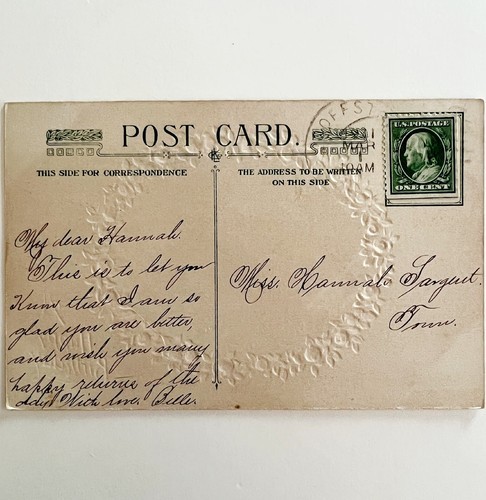 POST CARD.
THIS SIDE FOR CORRESPONDENCE
THE ADDRESS TO BE WRITTEN
ON THIS SIDE
OFFST
MAR
10AM
U.S.POSTAGE
ONE CENT
My dear Hannah.
This is to let you
know that I am so
glad you are bitter,
and wish you many
happy returns of the
day. With love. Belle.
Miss. Hannah Sargent.
Town.